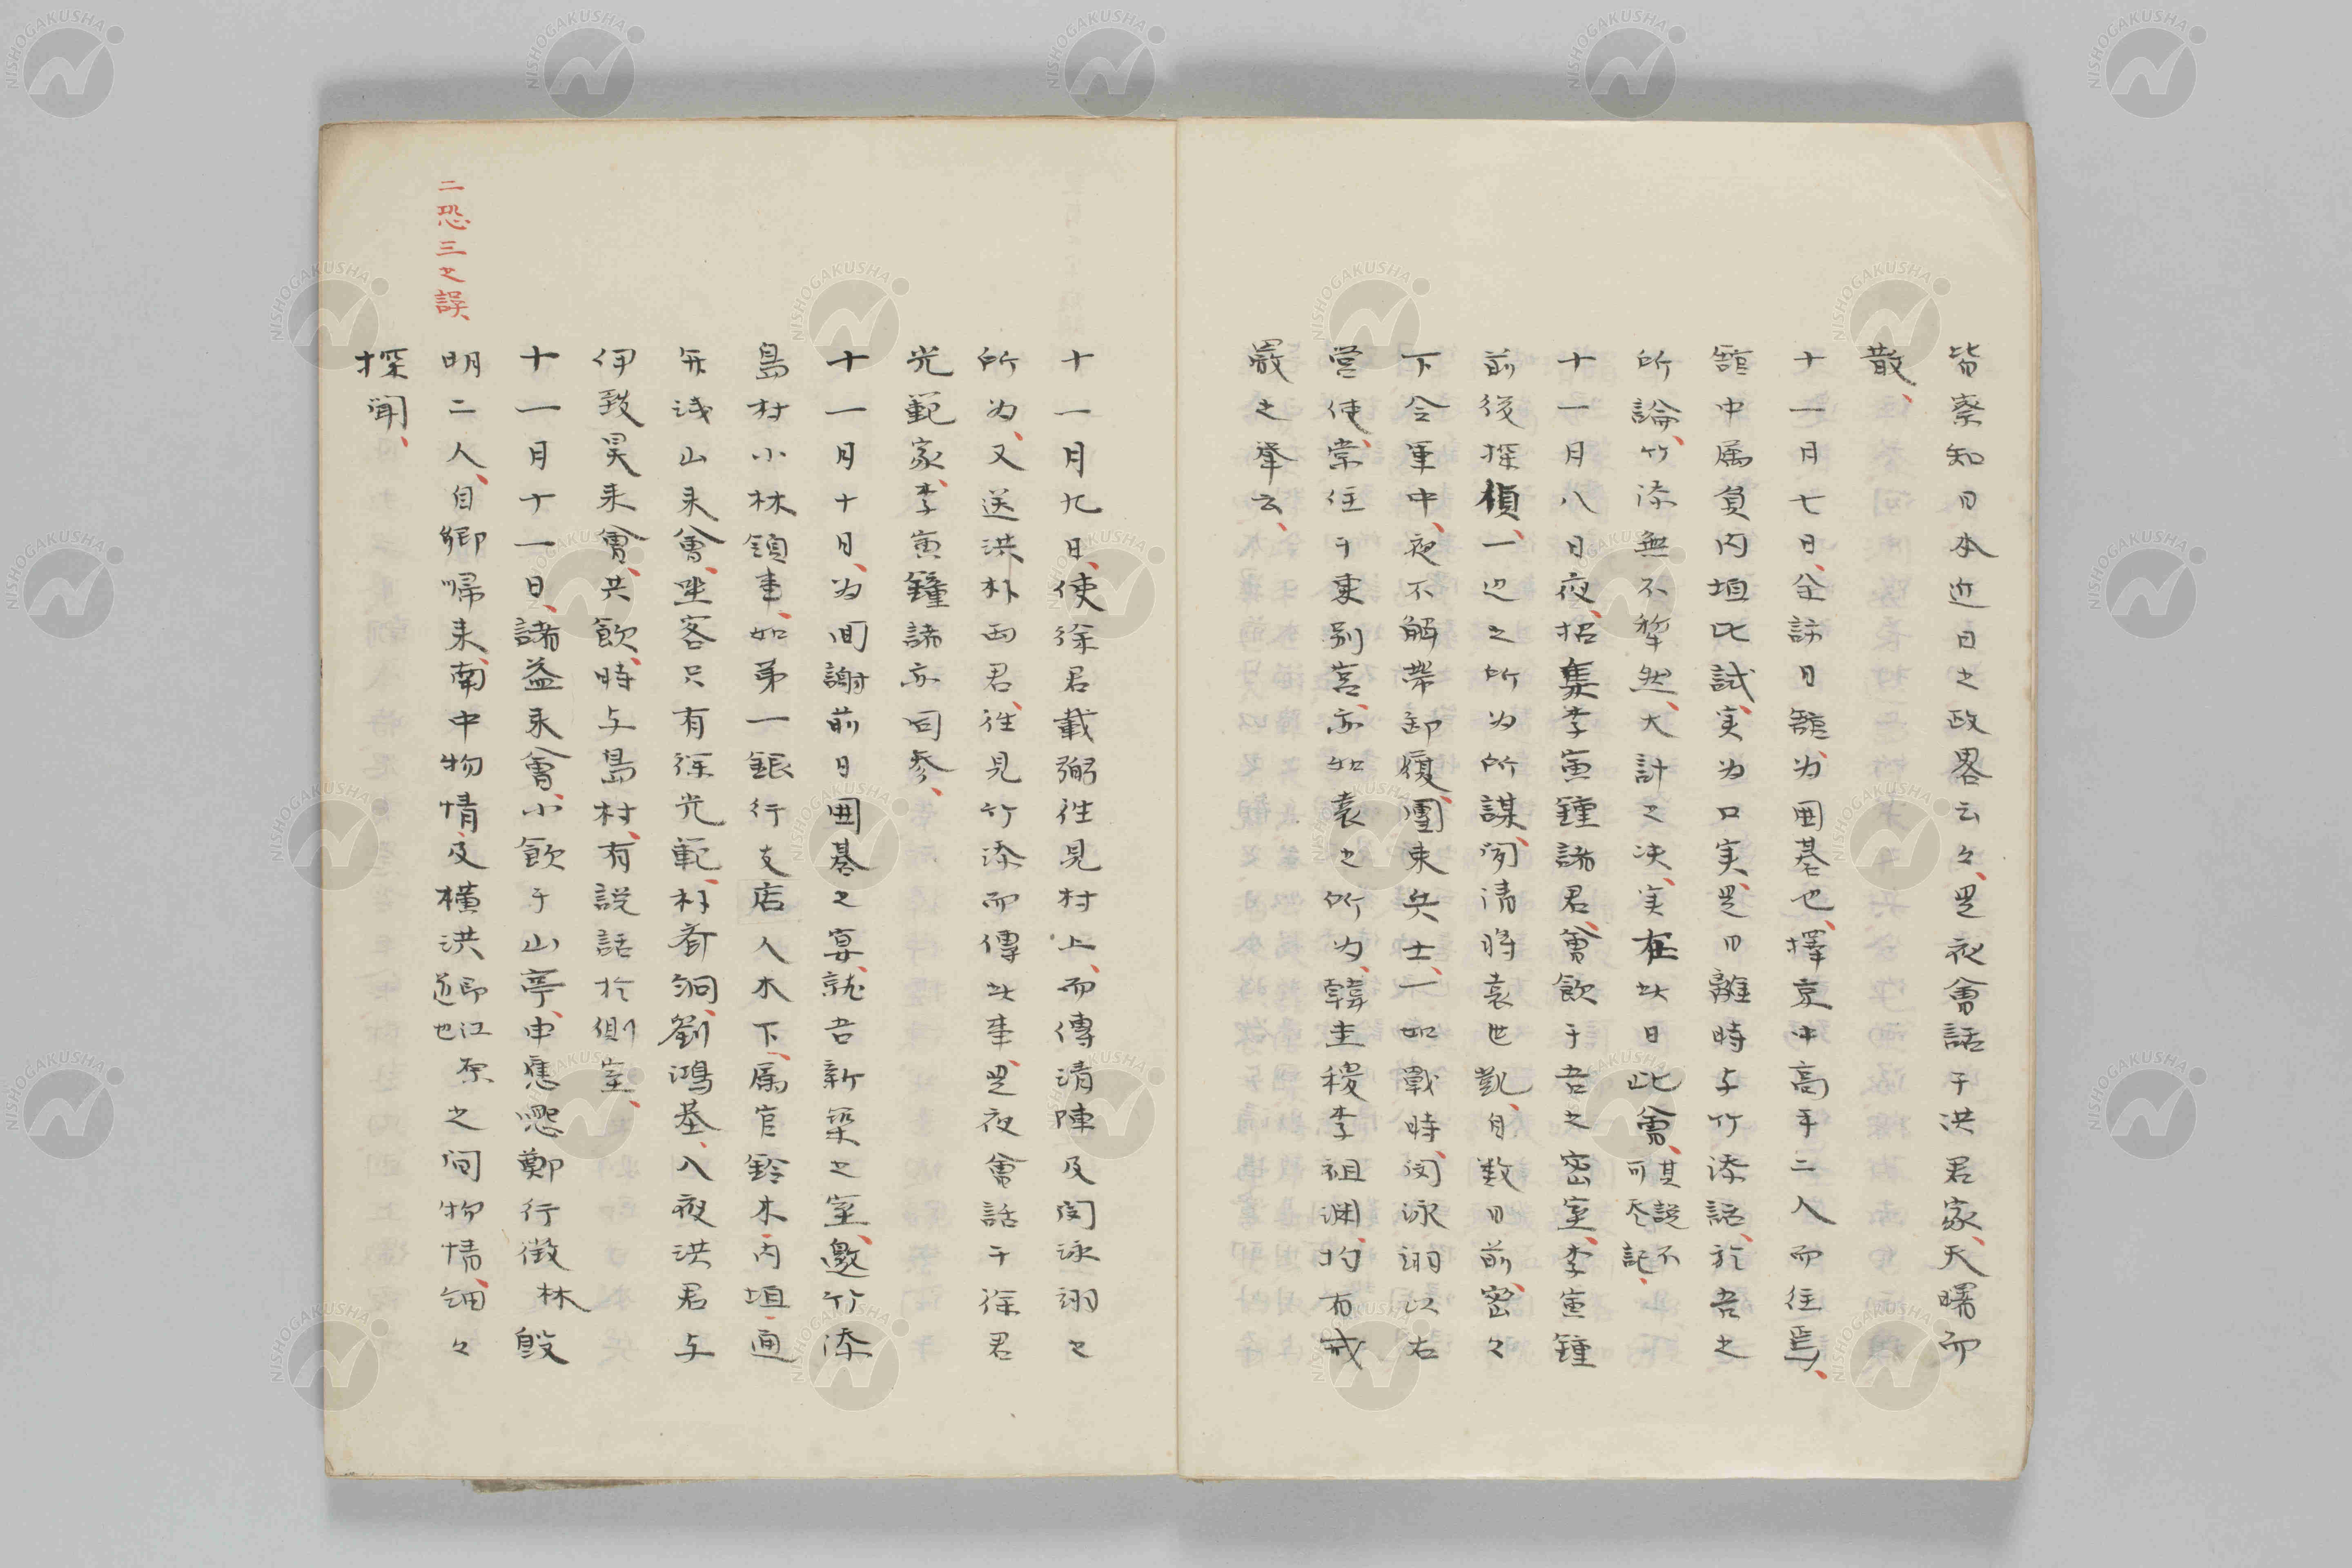 皆察知日本近日之政畧云々、是夜會話于洪君家、天曙而
散、
十一月七日、余訪日館、为囲碁也、擇京中高手二人而往焉、
館中属負内垣比試、実为口実、是日離時与竹添話、於吾之
所論、竹添無不犂然、大計之决、実在此日此會、其説不可尽記、
十一月八日夜、招集李寅鍾諸君、會飲于吾之密室、李寅鍾
前後探偵、一边之所为所謀、聞清將袁世凱、自数日前、密々
下令軍中、夜不解帯卸履、團束兵士、一如戰時、閔泳翊以右
営使、常住于東別宮、亦如袁之所为、韓圭稷李祖渊、均有戒
嚴之擧云、
十一月九日、使徐君載弼往見村上、而傳清陣及閔泳翊之
所为、又送洪朴両君、往見竹添而傳此事、是夜會話于徐君
光範家、李寅鍾諸亦同参、
十一月十日、为回謝前日囲碁之宴、就吾新築之室、邀竹添
島村小林領事、如第一銀行支店人木下、属官鈴木、内垣、通
弁浅山来會、坐客只有徐光範、朴斎洞、劉鴻基、入夜洪君与
伊致昊来會、共飲、時与島村、有説話於側室、
十一月十一日、諸益来會、小飲于山亭、申應愳鄭行徴林殷
二恐三之誤、
明二人、自郷帰来、南中物情及橫洪即江原道也之间物情、細々
探聞、